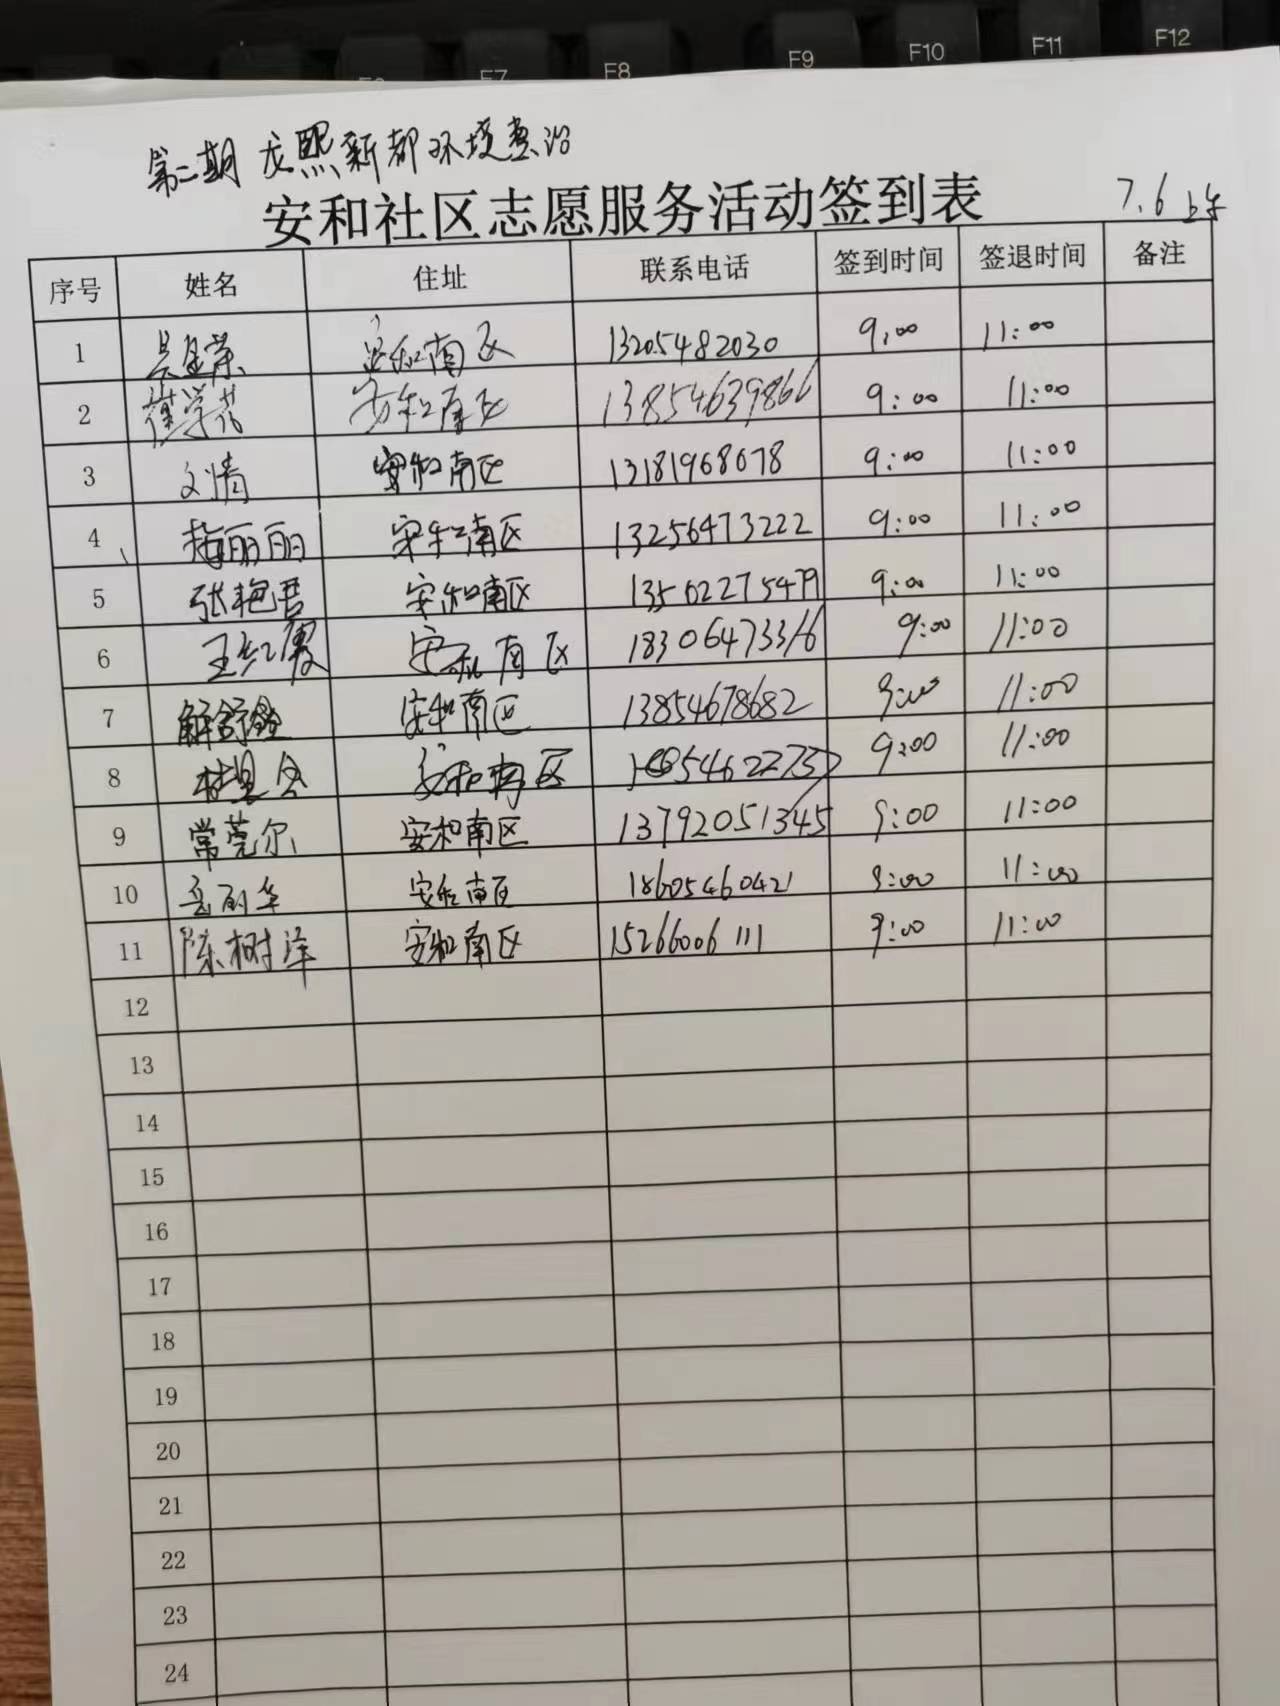 F6 F7 F8 F9 F10 F11 F12
第二期 龙熙新都环境整治
安和社区志愿服务活动签到表 7.6 上午
序号 姓名 住址 联系电话 签到时间 签退时间 备注
1 安和南区 13205482030 9:00 11:00
2 安和南区 13854639866 9:00 11:00
3 文清 安和南区 13181968678 9:00 11:00
4 梅丽丽 安和南区 13256473222 9:00 11:00
5 张艳君 安和南区 13562275479 9:00 11:00
6 王红霞 安和南区 18306473316 9:00 11:00
7 安和南区 13854678682 9:00 11:00
8 安和南区 9:00 11:00
9 常莞尔 安和南区 13792051345 9:00 11:00
10 安和南区 18605460421 9:00 11:00
11 陈树泽 安和南区 15266006111 9:00 11:00
12
13
14
15
16
17
18
19
20
21
22
23
24